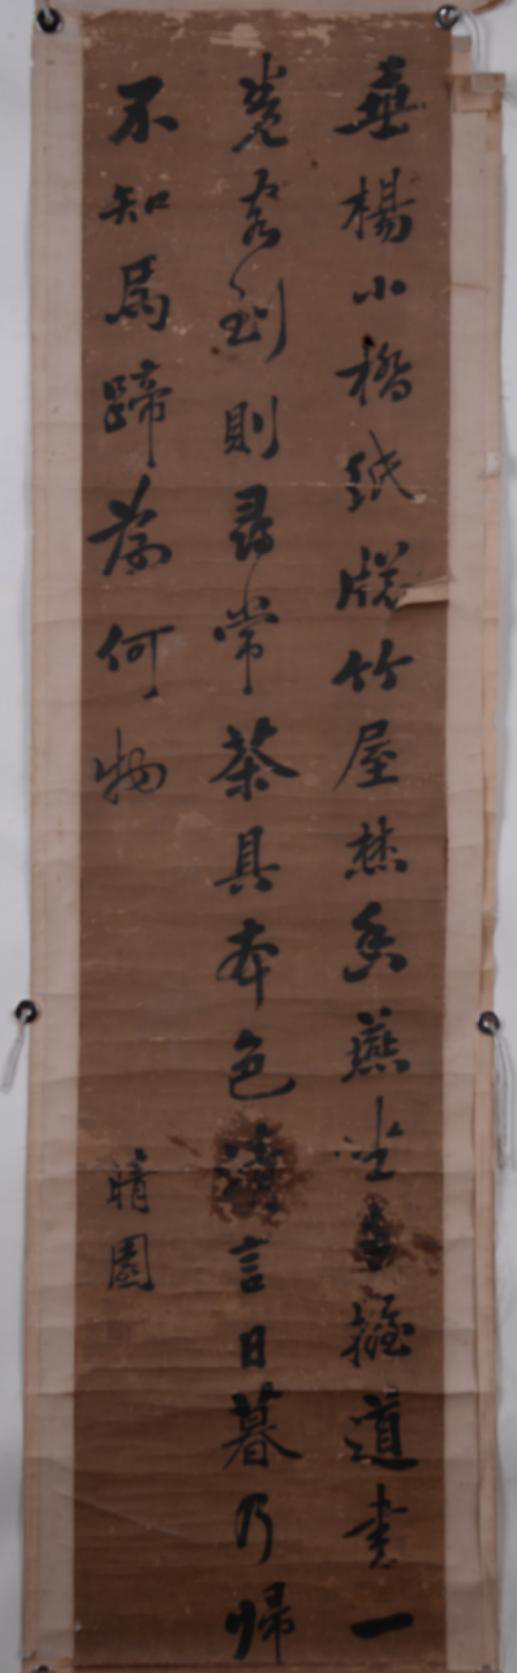 垂楊小橋紙牕竹屋焚香燕坐手握道書一
卷客到則尋常茶具本色清言日暮乃帰
不知馬蹄為何物
晴園